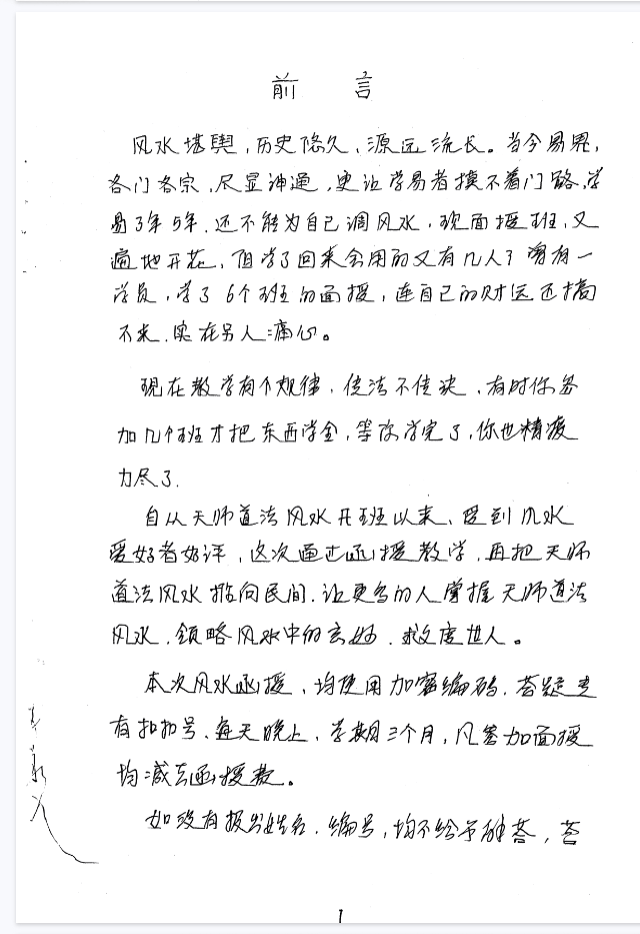 前 言
风水堪舆,历史悠久,源远流长。当今易界,
各门各宗,尽显神通,更让学易者摸不着门路,学
易3年5年,还不能为自己调风水,现面授班,又
遍地开花,但学了回来会用的又有几人?曾有一
学员,学了6个班的面授,连自己的财运还搞
不来,实在另人痛心。
现在教学有个规律,传法不传诀,有时你参
加几个班才把东西学全,等你学完了,你也精疲
力尽了.
自从天师道法风水开班以来,受到风水
爱好者好评,这次通过函授教学,再把天师
道法风水推向民间,让更多的人掌握天师道法
风水,领略风水中的玄妙,救度世人。
本次风水函授,均使用加密编码,答疑专
有扣扣号,每天晚上,学期三个月,凡参加面授
均减去函授款。
如没有报出姓名,编号,均不给予解答,答
1